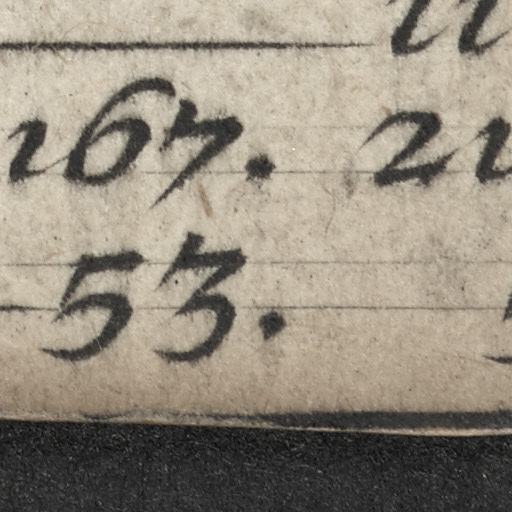 167. 21
53.